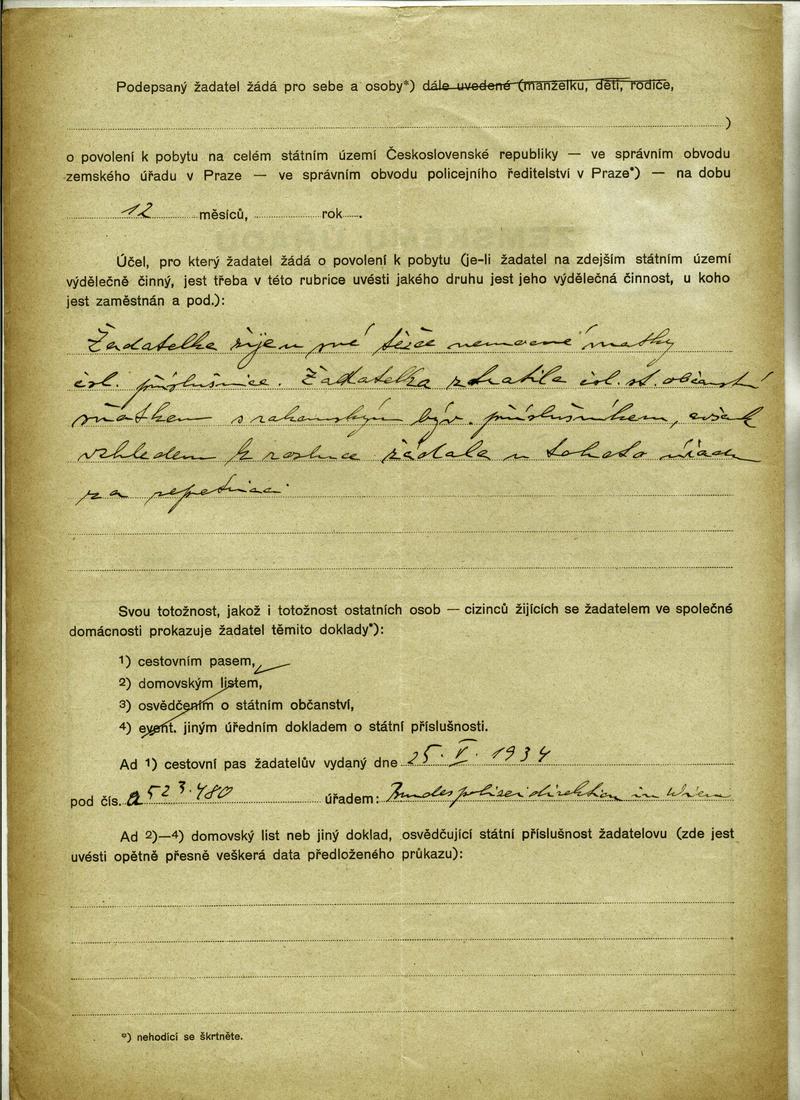 Podepsaný žadatel žádá pro sebe a osoby*) dále uvedené (manželku, děti, rodiče,
)
o povolení k pobytu na celém státním území Československé republiky — ve správním obvodu
zemského úřadu v Praze — ve správním obvodu policejního ředitelství v Praze*) — na dobu
12 měsíců, rok .
Účel, pro který žadatel žádá o povolení k pobytu (je-li žadatel na zdejším státním území
výdělečně činný, jest třeba v této rubrice uvésti jakého druhu jest jeho výdělečná činnost, u koho
jest zaměstnán a pod.):
Žadatelka žije u své těžce nemocné matky
čsl. příslušnice. Žadatelka ztratila čsl. st. občanství
sňatkem s rakouským býv. příslušníkem, avšak
vzhledem k rozluce žádala u tohoto úřadu
za repatriaci
Svou totožnost, jakož i totožnost ostatních osob — cizinců žijících se žadatelem ve společné
domácnosti prokazuje žadatel těmito doklady*):
1) cestovním pasem,
2) domovským listem,
3) osvědčením o státním občanství,
4) event. jiným úředním dokladem o státní příslušnosti.
Ad 1) cestovní pas žadatelův vydaný dne 25. V. 1934
pod čís. a 523.480 úřadem: Bundespolizeidirektion in Wien
Ad 2)—4) domovský list neb jiný doklad, osvědčující státní příslušnost žadatelovu (zde jest
uvésti opětně přesně veškerá data předloženého průkazu):
*) nehodící se škrtněte.